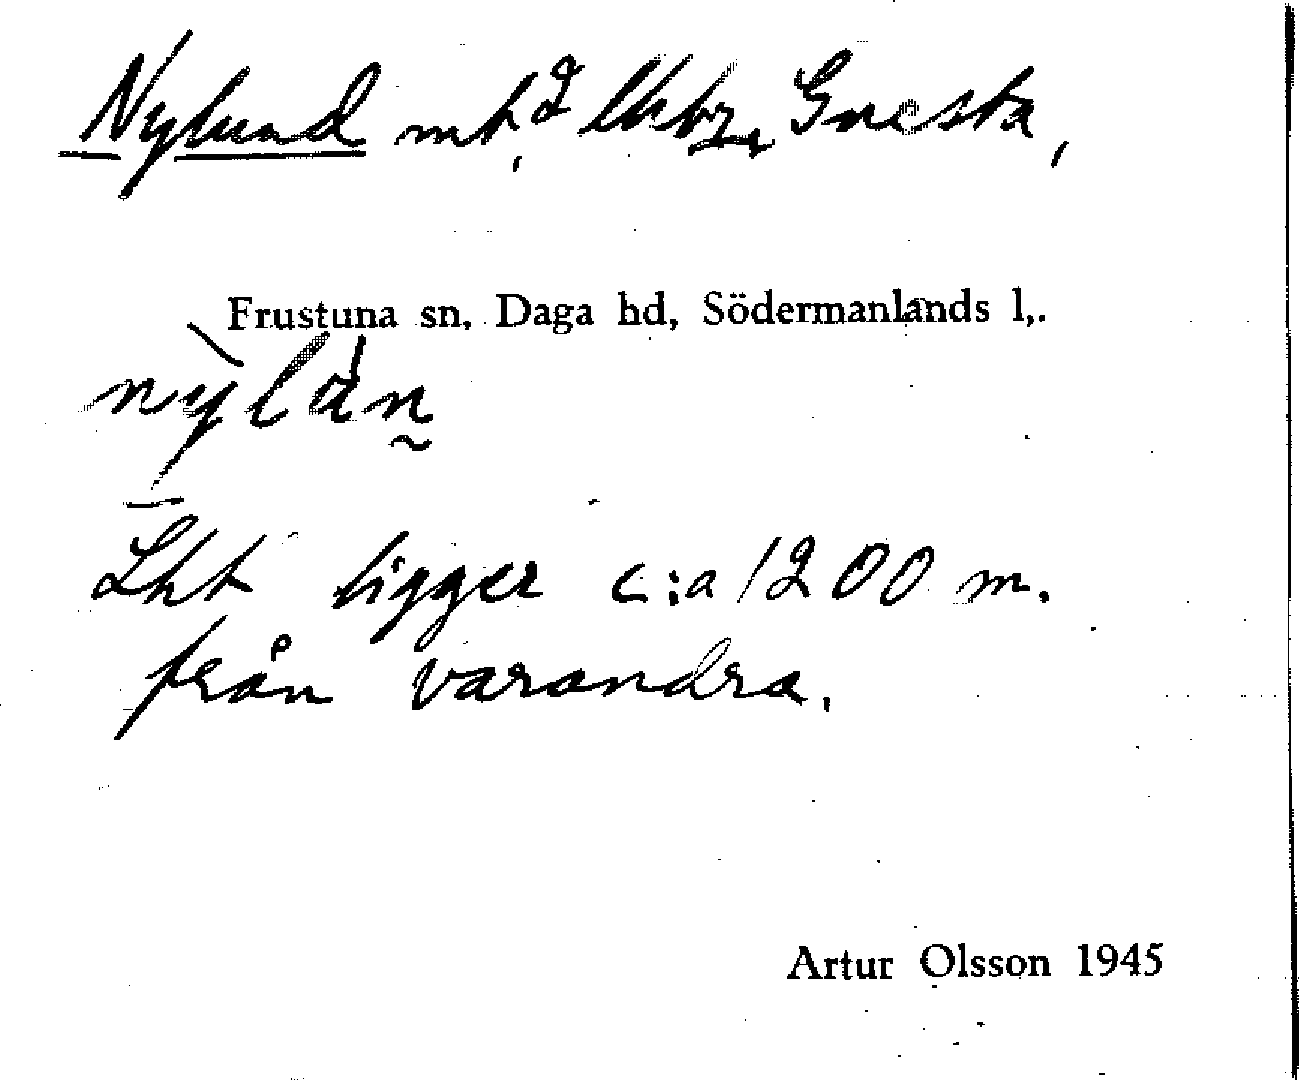 Nylund mt, 2 lhtr, Gnesta,
Frustuna sn, Daga hd, Södermanlands l,.
nỳlán
Lht ligger c:a 1200 m.
från varandra.
Artur Olsson 1945